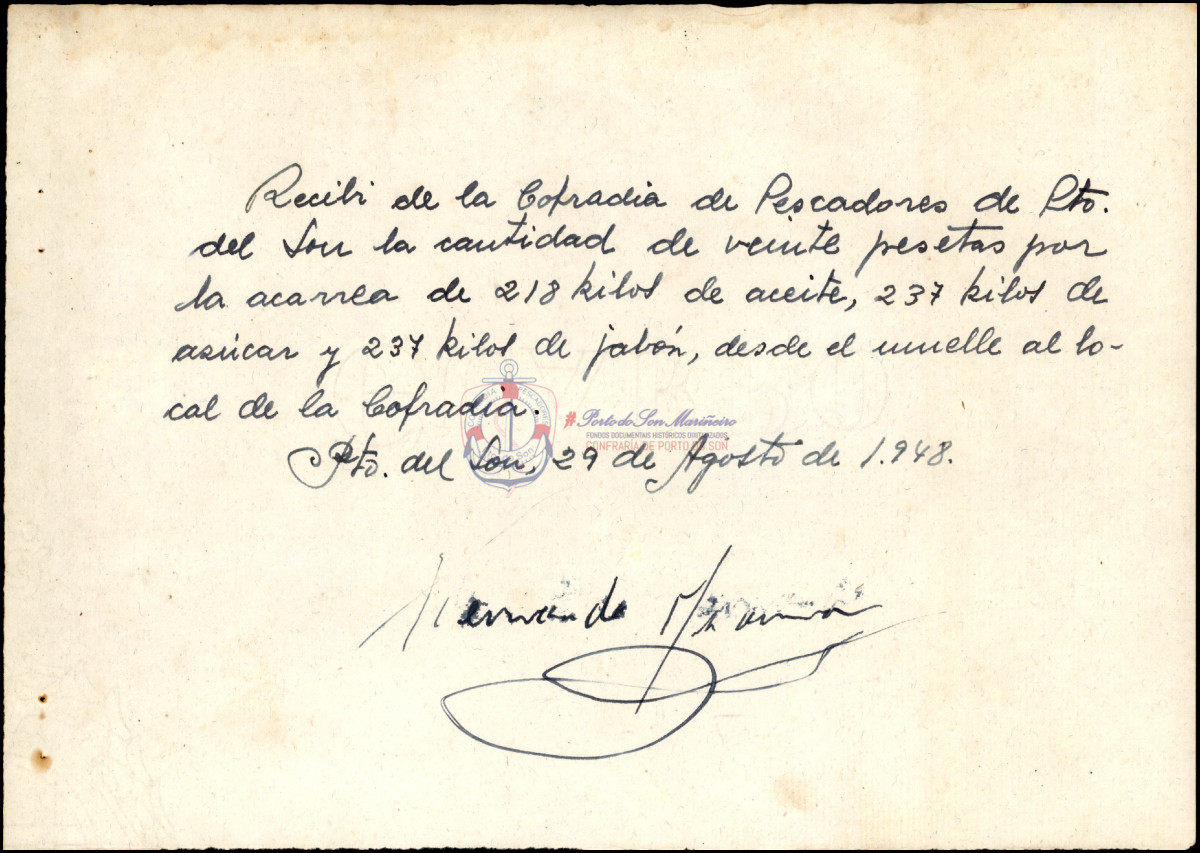 Recibi de la Cofradia de Pescadores de Pto.
del Son la cantidad de veinte pesetas por
la acarrea de 218 kilos de aceite, 237 kilos de
azúcar y 237 kilos de jabón, desde el muelle al lo-
cal de la Cofradia.
# Porto do Son Mariñeiro
FONDOS DOCUMENTAIS HISTÓRICOS DIXITALIZADOS
CONFRARÍA DE PORTO DO SON
Pto. del Son, 29 de Agosto de 1.948.